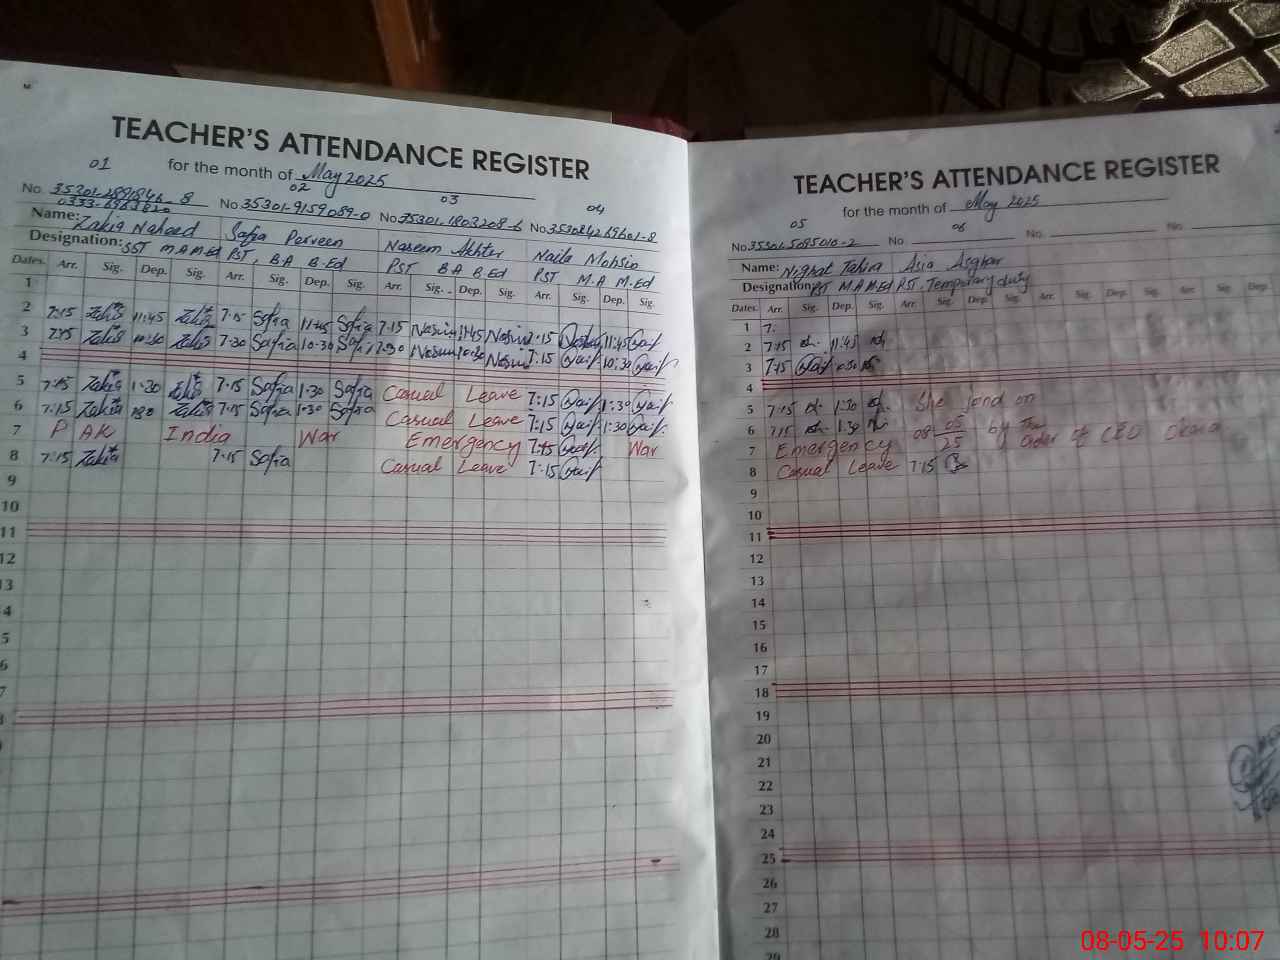 TEACHER'S ATTENDANCE REGISTER
01
for the month of May 2025
02
03
04
No. 35301-2891846-8
No. 35301-9159089-0
No. 35301-1803208-6
No. 35302
Name: Zakia Naheed
Safia Parveen
Naseem Akhter
Naila Mohsin
Designation: SST M A M.Ed
PST, B A B-Ed
PST B A B Ed
PST M.A M.Ed
Dates. Arr. Sig. Dep. Sig. Arr. Sig. Dep. Sig. Arr. Sig. Dep. Sig. Arr. Sig. Dep. Sig.
1
2 7:15 Zakia 11:45 Zakia 7:15 Safia 11:45 Safia 7:15 11:45 7:15 11:45
3 7:15 Zakia 10:30 Zakia 7:30 Safia 10:30 Safia 7:30 10:30 7:15 10:30
4
5 7:15 Zakia 1:30 7:15 Safia 1:30 Safia Casual Leave 7:15 1:30
6 7:15 Zakia 1:30 Zakia 7:15 Safia 1:30 Safia Casual Leave 7:15 1:30
7 PAK India War Emergency 7:15 War
8 7:15 Zakia 7:15 Safia Casual Leave 7:15
9
10
11
12
13
14
5
6
7
8
TEACHER'S ATTENDANCE REGISTER
for the month of May 2025
05
06
No. 35301-5095010-2
No.
No.
No.
Name: Nighat Tahira
Asia Asghar
Designation: PST M A M.Ed
PST. Temporary duty
Dates. Arr. Sig. Dep. Sig. Arr. Sig. Dep. Sig. Arr. Sig. Dep. Sig. Arr. Sig. Dep.
1 7:
2 7:15 11:45
3 7:15 10:30
4
5 7:15 1:30 She on
6 7:15 1:30
7 Emergency 08 05/25 by The order of CEO Okara
8 Casual Leave 7:15
9
10
11
12
13
14
15
16
17
18
19
20
21
22
23
24
25
26
27
28
29
08-05-25 10:07